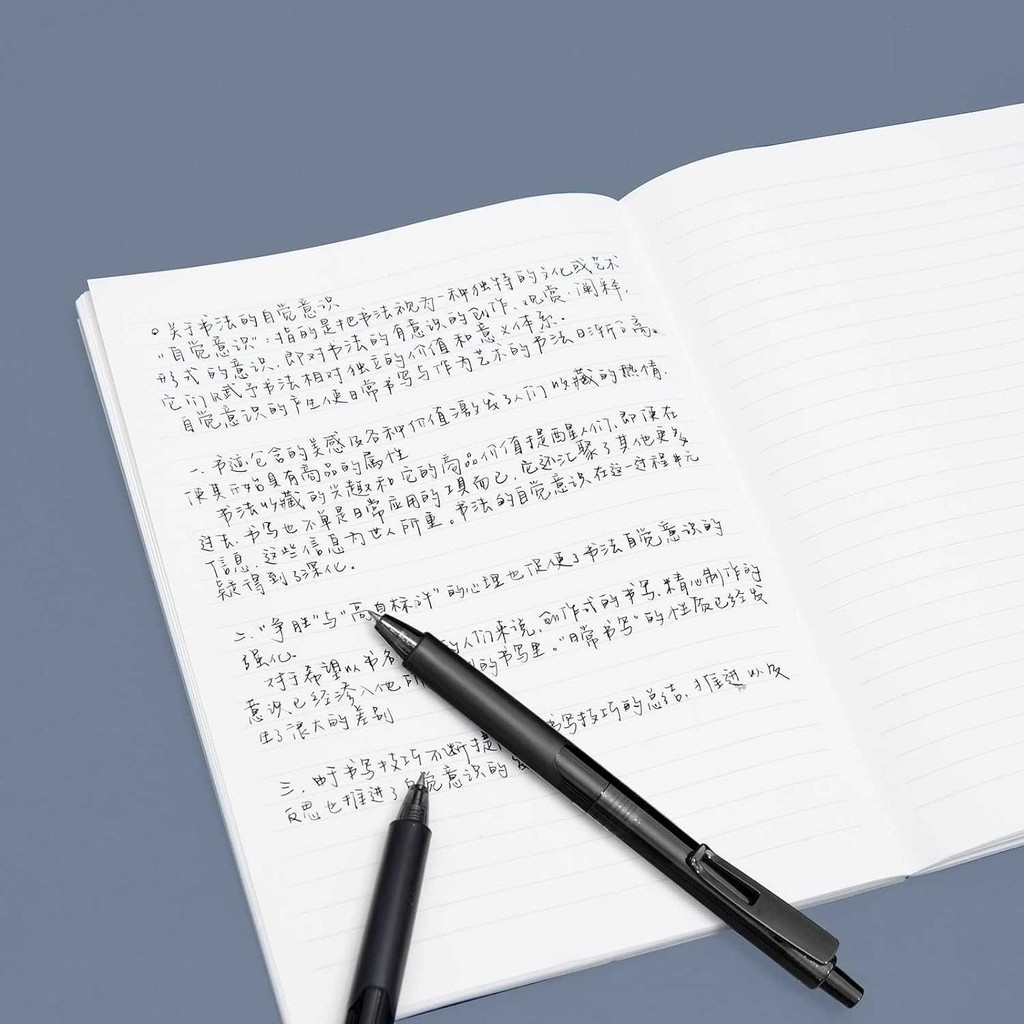 关于书法的自觉意识
"自觉意识":指的是把书法视为一种独特的文化或艺术
形式的意识,即对书法的有意识的创作、观赏、阐释,
它们赋予书法相对独立的价值和意义体系。
自觉意识的产生使日常书写与作为艺术的书法日渐分离。
一、书迹包含的美感及各种价值激发了人们收藏的热情,
使其开始具有商品的属性
书法收藏的兴趣和它的商品价值提醒人们,即便在
过去,书写也不单是日常应用的工具而已,它还汇聚了其他更多
信息,这些信息为世人所重。书法的自觉意识在这一过程中无
疑得到了深化。
二、"争胜"与"高自标评"的心理也促使了书法自觉意识的
强化。
对于希望以书名 的人们来说,创作式的书写、精心制作的
意识已经渗入他 的书写里。"日常书写"的性质已经发
生了很大的差别
三、由于书写技巧不断提 书写技巧的总结、推进以及
反思也推进了自觉意识的